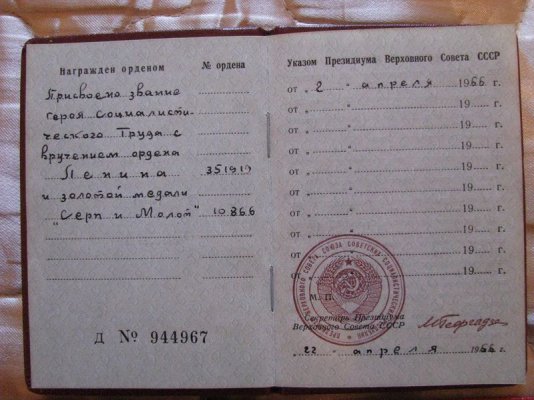 Награжден орденом № ордена
Присвоено звание
героя Социалисти-
ческого Труда с
вручением ордена
Ленина 351919
и золотой медали
"Серп и Молот" 10866
Д № 944967
Указом Президиума Верховного Совета СССР
от „ 2 " апреля 1966 г.
от „ " 19 г.
от „ " 19 г.
от „ " 19 г.
от „ " 19 г.
от „ " 19 г.
от „ " 19 г.
от „ " 19 г.
от „ " 19 г.
от 19 г.
М. П.
Секретарь Президиума
Верховного Совета СССР
„ 22 " апреля 1966 г.